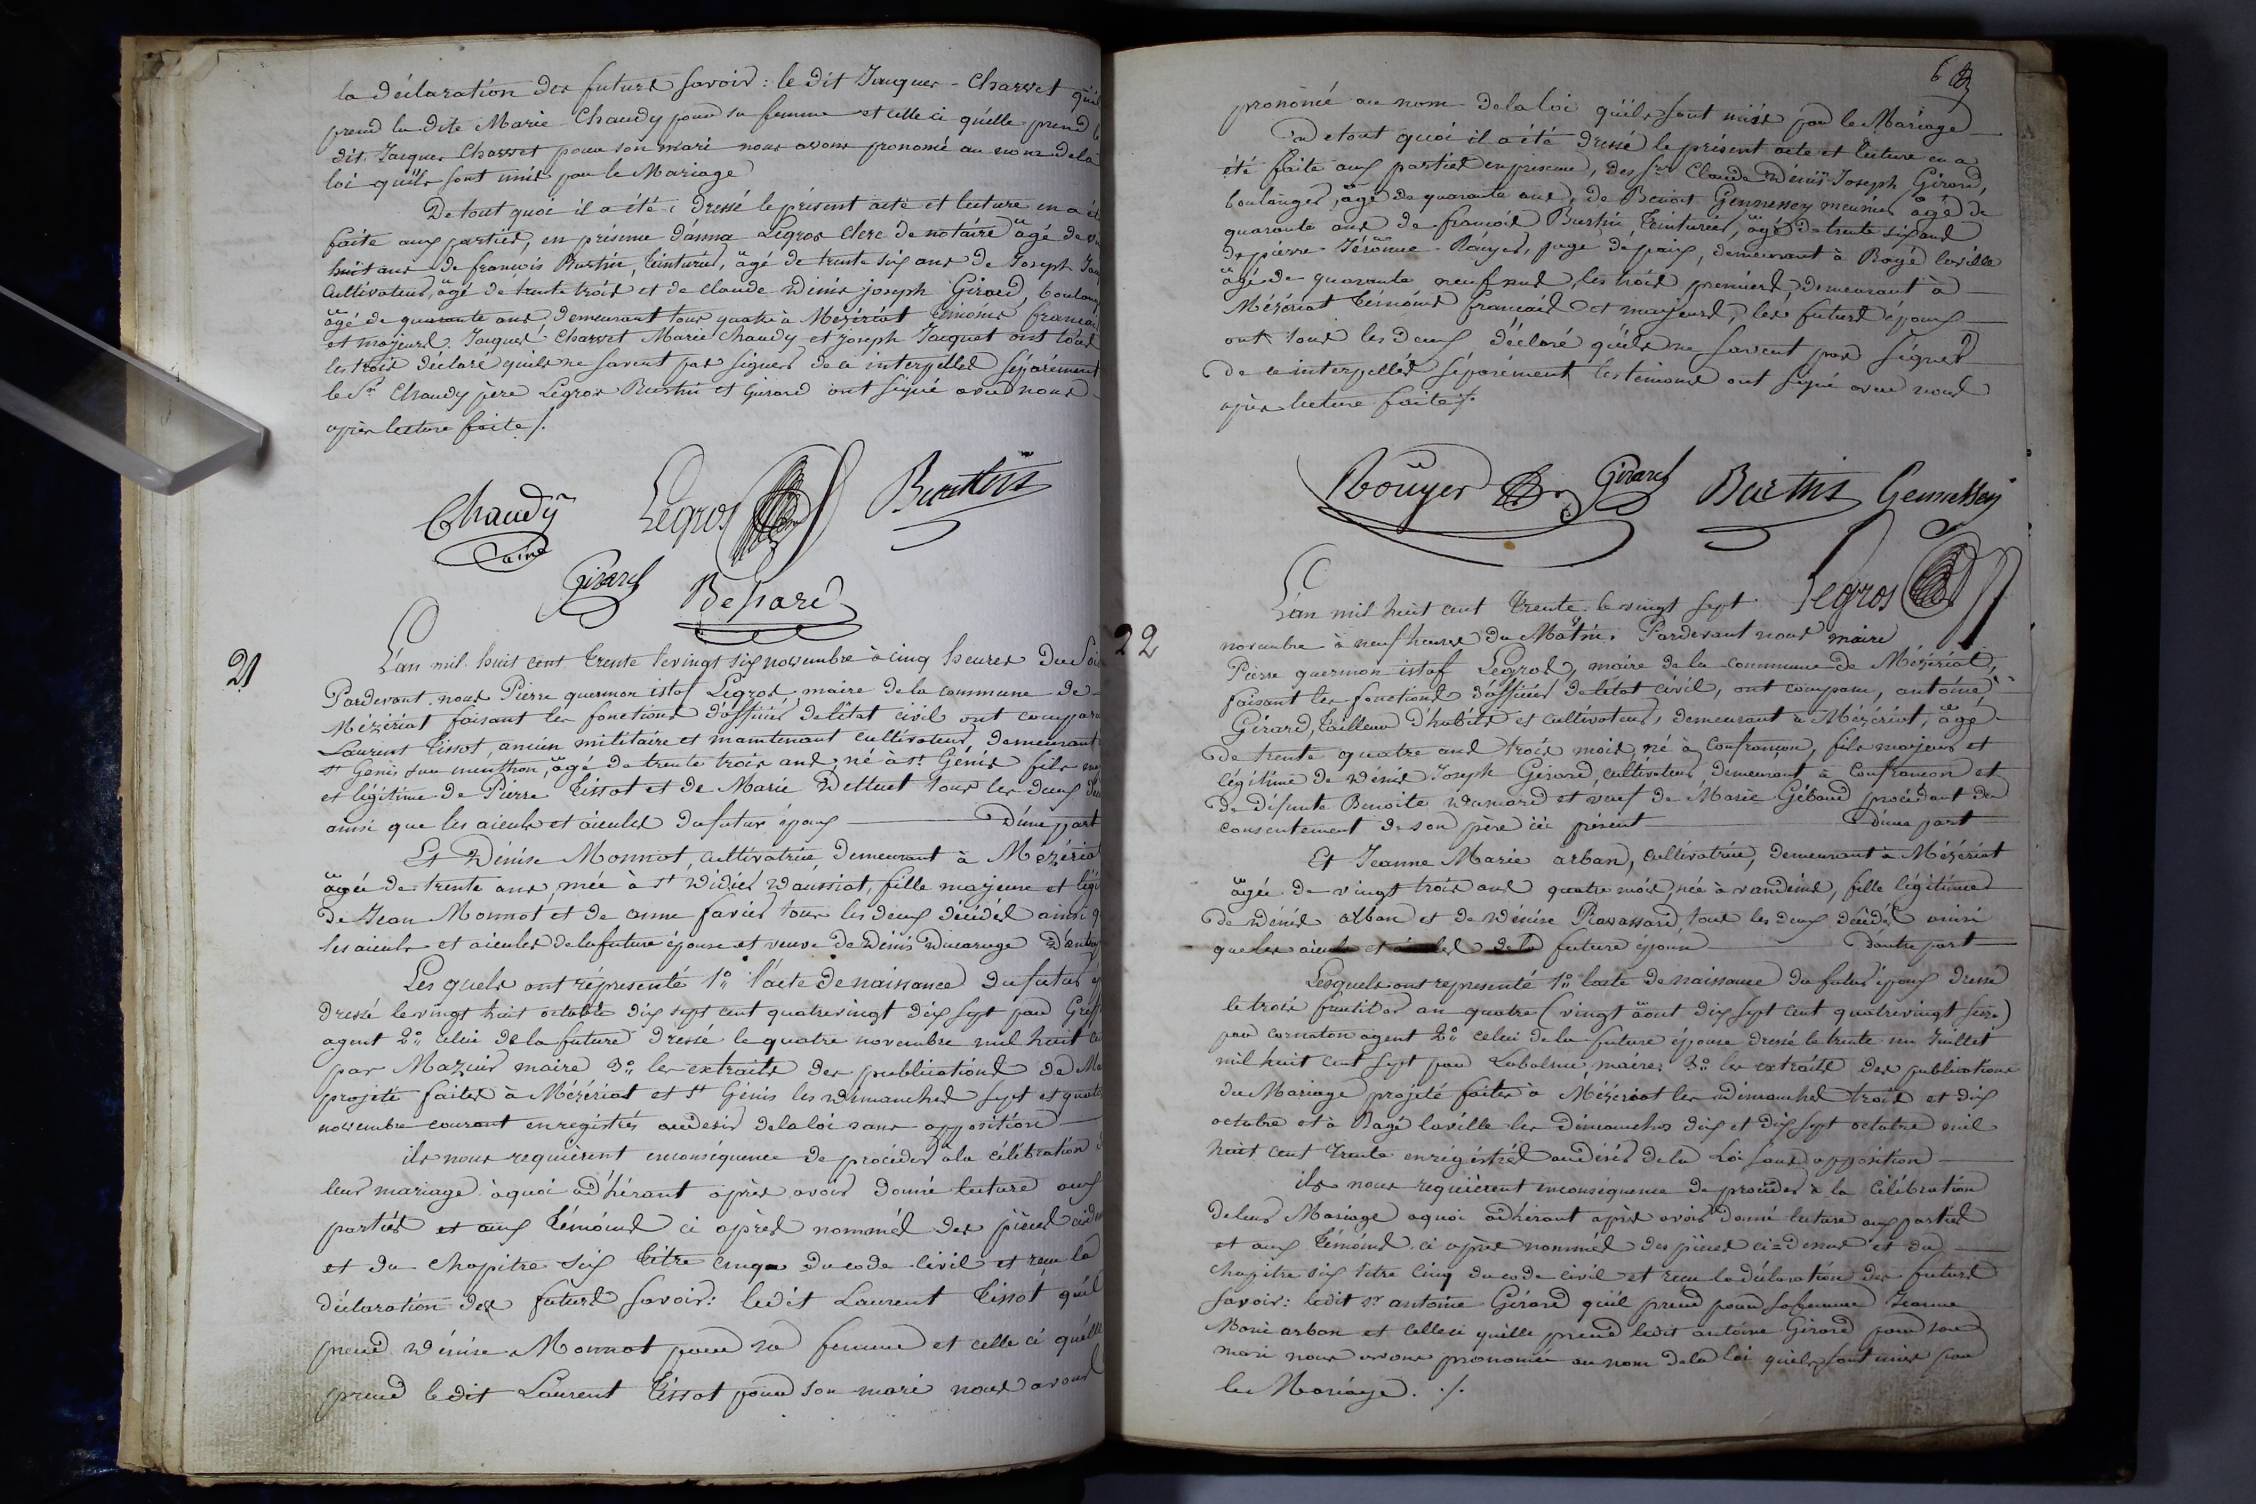 la déclaration des futurs savoir : le dit Jacques Chasset qu'il
prend la dite Marie Chaudy pour sa femme et celle ci qu'elle prend le
dit Jacques Chasset pour son mari nous avons prononcé au nom de la
loi qu'ils sont unis par le Mariage
De tout quoi il a été dressé le présent acte et lecture en a été
faite aux parties, en présence Legros clerc de notaire âgé de
huit ans de françois Burthin, teinturier, âgé de trente six ans de Joseph
Cultivateur, âgé de trente trois et de Claude Denis joseph Girard, boulanger
âgé de quarante ans demeurant tous quatre à Mézériat témoins français
et majeurs. Jacques Chasset Marie Chaudy et joseph Jacquet ont tous
les trois déclaré qu'ils ne savent pas signer de ce interpellés séparément
le Sr. Chaudy père Legros Burthin et Girard ont signé avec nous
après lecture faite ./.
Chaudy
ainé
Legros
Burthin
Girard
21
L'an mil huit cent trente le vingt six novembre à cinq heures du soir
Pardevant nous Pierre quermon istof Legros, maire de la commune de
Mézériat faisant les fonctions d'officier de l'état civil ont comparu
Laurent Tissot, ancien militaire et maintenant cultivateur, demeurant
St Genis sur menthon, âgé de trente trois ans, né à St Génis fils
et légitime de Pierre Tissot et de Marie tous les deux
ainsi que les aieuls et aieules du futur époux D'une part
Et Dénise Monnot, cultivatrice, demeurant à Mézériat
âgée de trente ans, née à St Didier D'aussiat, fille majeure et
de Jean Monnot et de anne favier tous les deux décédés ainsi que
les aieuls et aieules de la future épouse et veuve de Denis D'autre
Lesquels ont représenté 1o. l'acte de naissance du futur
dressé le vingt huit octobre dix sept cent quatrevingt dix sept par
agent 2o. celui de la future dressé le quatre novembre mil huit cent
par Mazuir maire 3o. les extraits des publications de
projeté faites à Mézériat et St Génis les dimanches sept et quatorze
novembre courant enregistrés au désir de la loi sans opposition
ils nous requièrent en conséquence de procéder à la célébration
leur mariage à quoi adhérant après avoir donné lecture aux
parties et aux témoins ci après nommés des pièces
et du chapitre six titre cinq du code civil et reçu la
déclaration des futurs savoir : ledit Laurent Tissot qu'il
prend Dénise Monnot pour sa femme et celle ci qu'elle
prend ledit Laurent Tissot pour son mari nous avons
6
prononcé au nom de la loi qu'ils sont unis par le Mariage
De tout quoi il a été dressé le présent acte et lecture en a
été faite aux parties en présence, des Srs Claude Denis Joseph Girard,
boulanger, âgé de quarante ans, de Benoit Gennessey meunier âgé de
quarante ans de françois Burthin, teinturier, âgé de trente six ans
de pierre Jérôme Rouyer, juge de paix, demeurant à Bagé la ville
âgé de quarante neuf ans, les trois premiers, demeurant à
Mézériat témoins français et majeurs, les futurs époux
ont tous les deux déclaré qu'ils ne savent pas signer
de ce interpellés séparément les témoins ont signé avec nous
après lecture faite ./.
Rouyer Girard Burthin Gennessey
Legros
22
L'an mil huit cent trente le vingt sept
novembre à neuf heures du Matin. Pardevant nous maire
Pierre quermon istof Legros, maire de la commune de Mézériat,
faisant les fonctions d'officier de l'état civil, ont comparu, antoine
Girard, tailleur d'habits et cultivateur, demeurant à Mézériat, âgé
de trente quatre ans trois mois, né à Confrançon, fils majeur et
légitime de Dénis Joseph Girard, cultivateur demeurant à Confrançon et
de défunte Benoite et veuf de Marie Gébaud procédant du
consentement de son père ici présent D'une part
Et Jeanne Marie arban, cultivatrice, demeurant à Mézériat
âgée de vingt trois ans quatre mois, née à vandeins, fille légitime
de Dénis arban et de Dénise Ravassard, tous les deux décédés ainsi
que les aieuls et de la future épouse D'autre part
Lesquels ont représenté 1o. l'acte de naissance du futur époux dressé
le trois fructidor an quatre (vingt août dix sept cent quatrevingt seize)
par cornaton agent 2o. celui de la future épouse dressé le trente un Juillet
mil huit cent sept par maire; 3o. les extraits des publications
du Mariage projeté faites à Mézériat les dimanches trois et dix
octobre et à Bagé la ville les dimanches dix et dix sept octobre mil
huit cent trente enregistrés au désir de la Loi sans opposition
ils nous requièrent en conséquence de procéder à la célébration
de leur Mariage à quoi adhérant après avoir donné lecture aux parties
et aux témoins ci après nommés des pièces ci-dessus et du
chapitre six titre cinq du code civil et reçu la déclaration des futurs
savoir : ledit Sr antoine Girard qu'il prend pour sa femme Jeanne
Marie arban et celle ci qu'elle prend ledit antoine Girard pour son
mari nous avons prononcé au nom de la loi qu'ils sont unis par
le Mariage. ./.